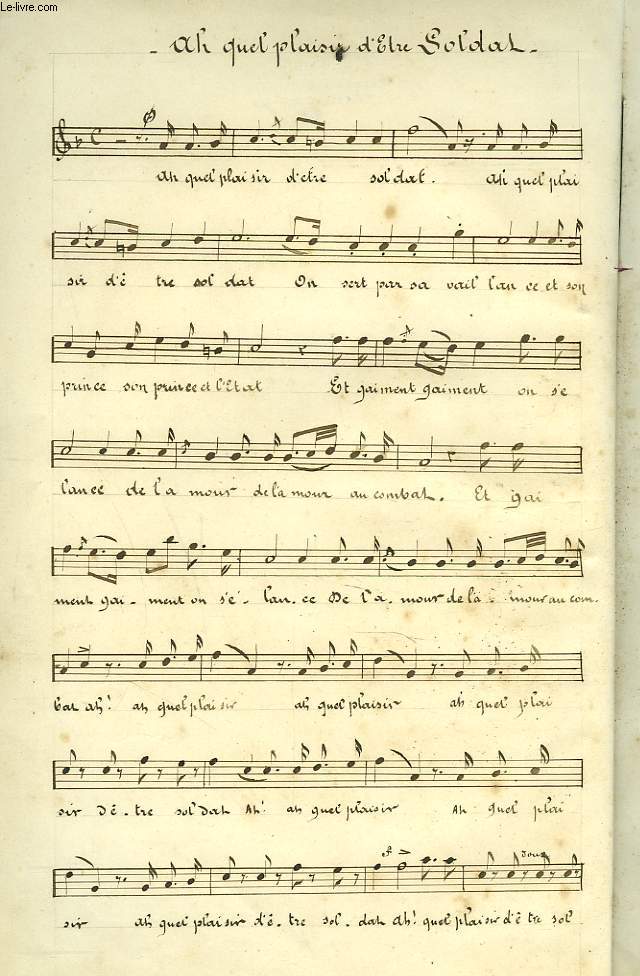 Le-livre.com
- Ah quel plaisir d'Etre Soldat -
Ah quel plai sir d'etre sol dat. Ah quel plai
sir d'ê tre sol dat On sert par sa vail lan ce et son
prince son prince et l'Etat Et gaiment gaiment on s'é
lance de l'a mour de la mour au combat. Et gai
ment gai - ment on s'é - lan. ce De l'a. mour de la - mour au com.
bat ah! ah quel plai sir ah quel plaisir ah quel plai
sir d'ê - tre sol dat Ah! ah quel plaisir Ah quel plai
f tous
sir ah quel plai sir d'ê - tre sol. dat Ah! quel plaisir d'ê tre sol